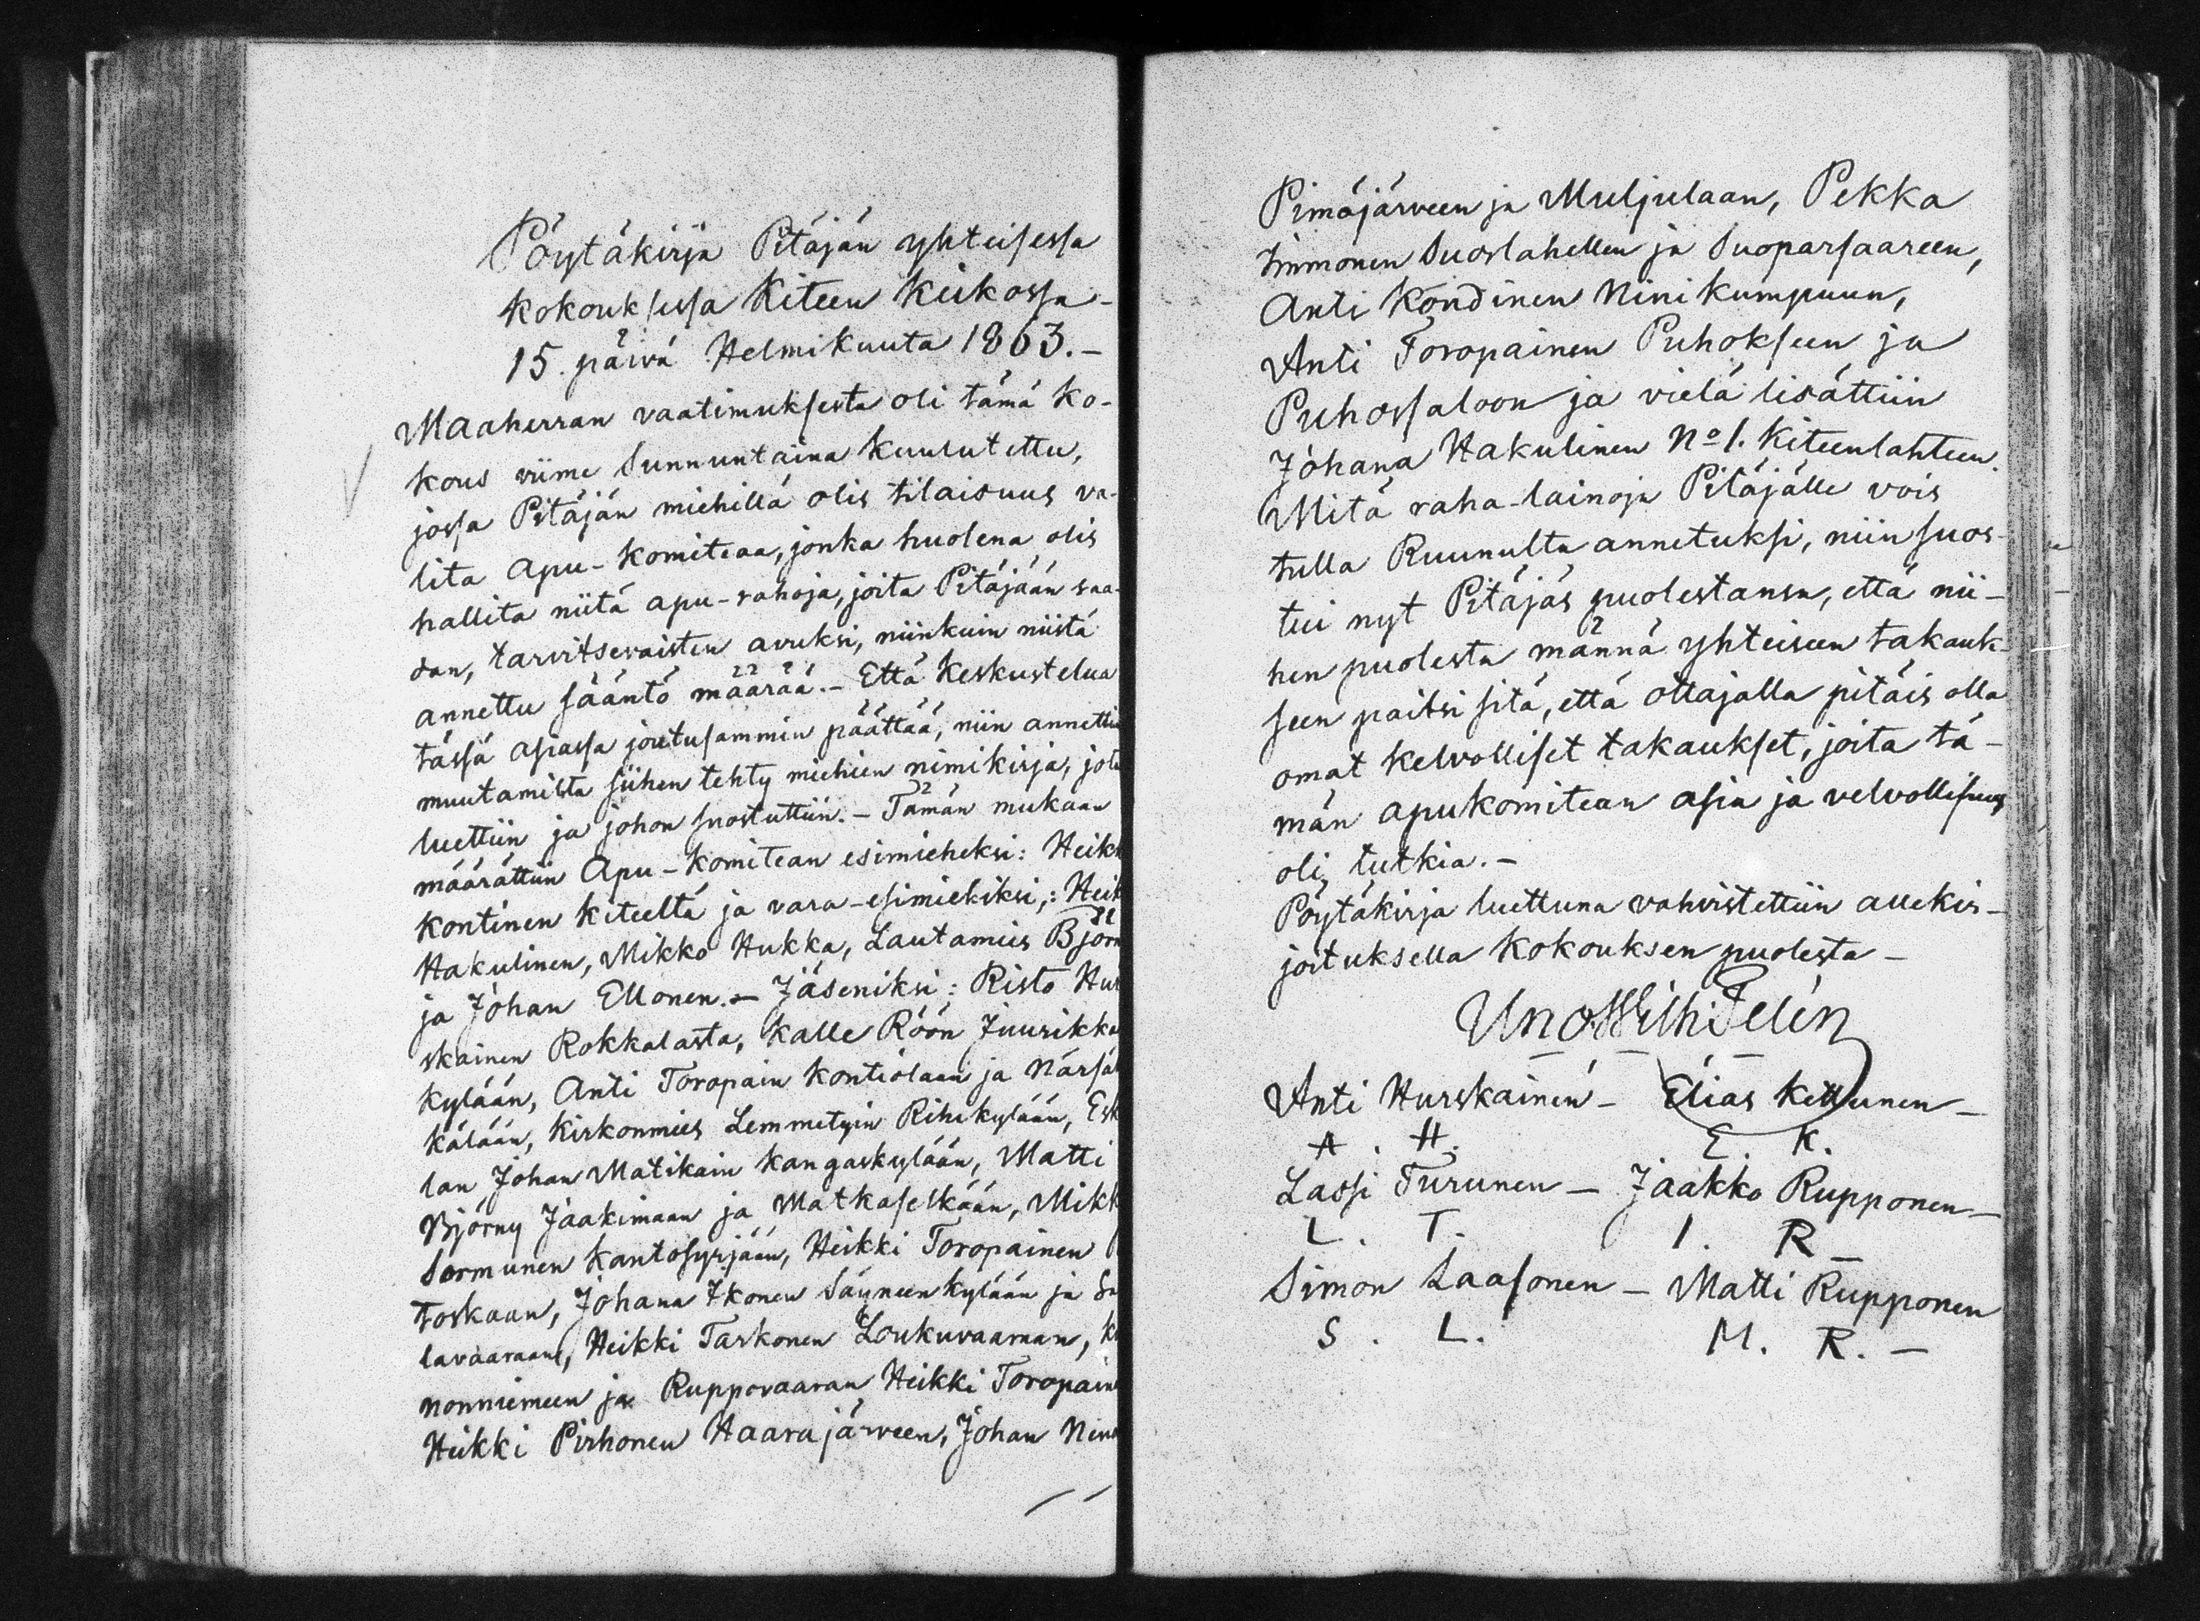 Pöytäkirja Pitäjän yhteisessa
kokouksessa Kiteen Keikossa
15. päivä Helmikuuta 1863.-
Maaherran vaatimuksesta oli tämä ko-
kous viime Sunnuntaina kuulutettu,
jossa Pitäjän miehillä olis tilaisuus va-
lita Apu-Komiteaa, jonka huolena olis
hallita niitä apu-rahoja, joita Pitäjään saa-
dan, tarvitsevaisten avuksi, niinkuin niistä
annettu sääntö määrää.- Että Keskustelua
tässä asiassa joutusammin päättää, niin annettiin
muutamista siihen tehty miehien nimikirja, jota
luettiin ja johon suostuttiin.- Tämän mukaan
määrättiin Apu-Komitean esimieheksi: Heikk
Kontinen Kiteeltä ja vara-esimiehiksi,: Heik
Hakulinen, Mikko Hukka, Lautamies Björn
ja Johan Ellonen.- Jäseniksi: Risto Hur
skainen Rokkalasta, Kalle Röön Juurikka
kylään, Anti Toropain Kontiolaan ja Närsä
kälään, Kirkonmies Lemmetyin Riihikylään, Esk
lan Johan Matikain Kangaskylään, Matti
Björny Jaakimaan ja Matkaselkään, Mikk
Sormunen Kantosyrjään, Heikki Toropainen
toskaan, Johana Ikonen Säyneenkylään ja Sa
lavaaraan, Heikki Tarkonen Loukuvaaraan, K
nonniemeen ja Ruppovaaran Heikki Toropain
Heikki Pirhonen Haarajärveen, Johan Nino
Pimäjärveen ja Muljulaan, Pekka
Timmonen Suorlahellen ja Suoparsaareen,
Anti Kondinen Ninikumpuun,
Anti Toropainen Puhokseen ja
Puhossaloon ja vielä lisättiin
Johana Hakulinen No 1. Kiteenlahteen.
Mitä raha-lainoja Pitäjälle vois
tulla Ruunulta annetuksi, niin suos-
tui nyt Pitäjäs puolestansa, että nii-
hen puolesta männä yhteiseen takauk-
seen paitsi sitä, että ottajalla pitäis olla
omat kelvolliset takaukset, joita tä-
män apukomitean asia ja velvollisuus
oli tutkia.-
Pöytäkirja luettuna vahvistettiin allekir-
joituksella Kokouksen puolesta-
Uno Wilh: Telén
Anti Hurskainen - Elias Kettunen-
A. H. E. K.
Lassi Turunen - Jaakko Rupponen-
L. T. I. R-
Simon Laasonen - Matti Rupponen
S. L. M. R.-